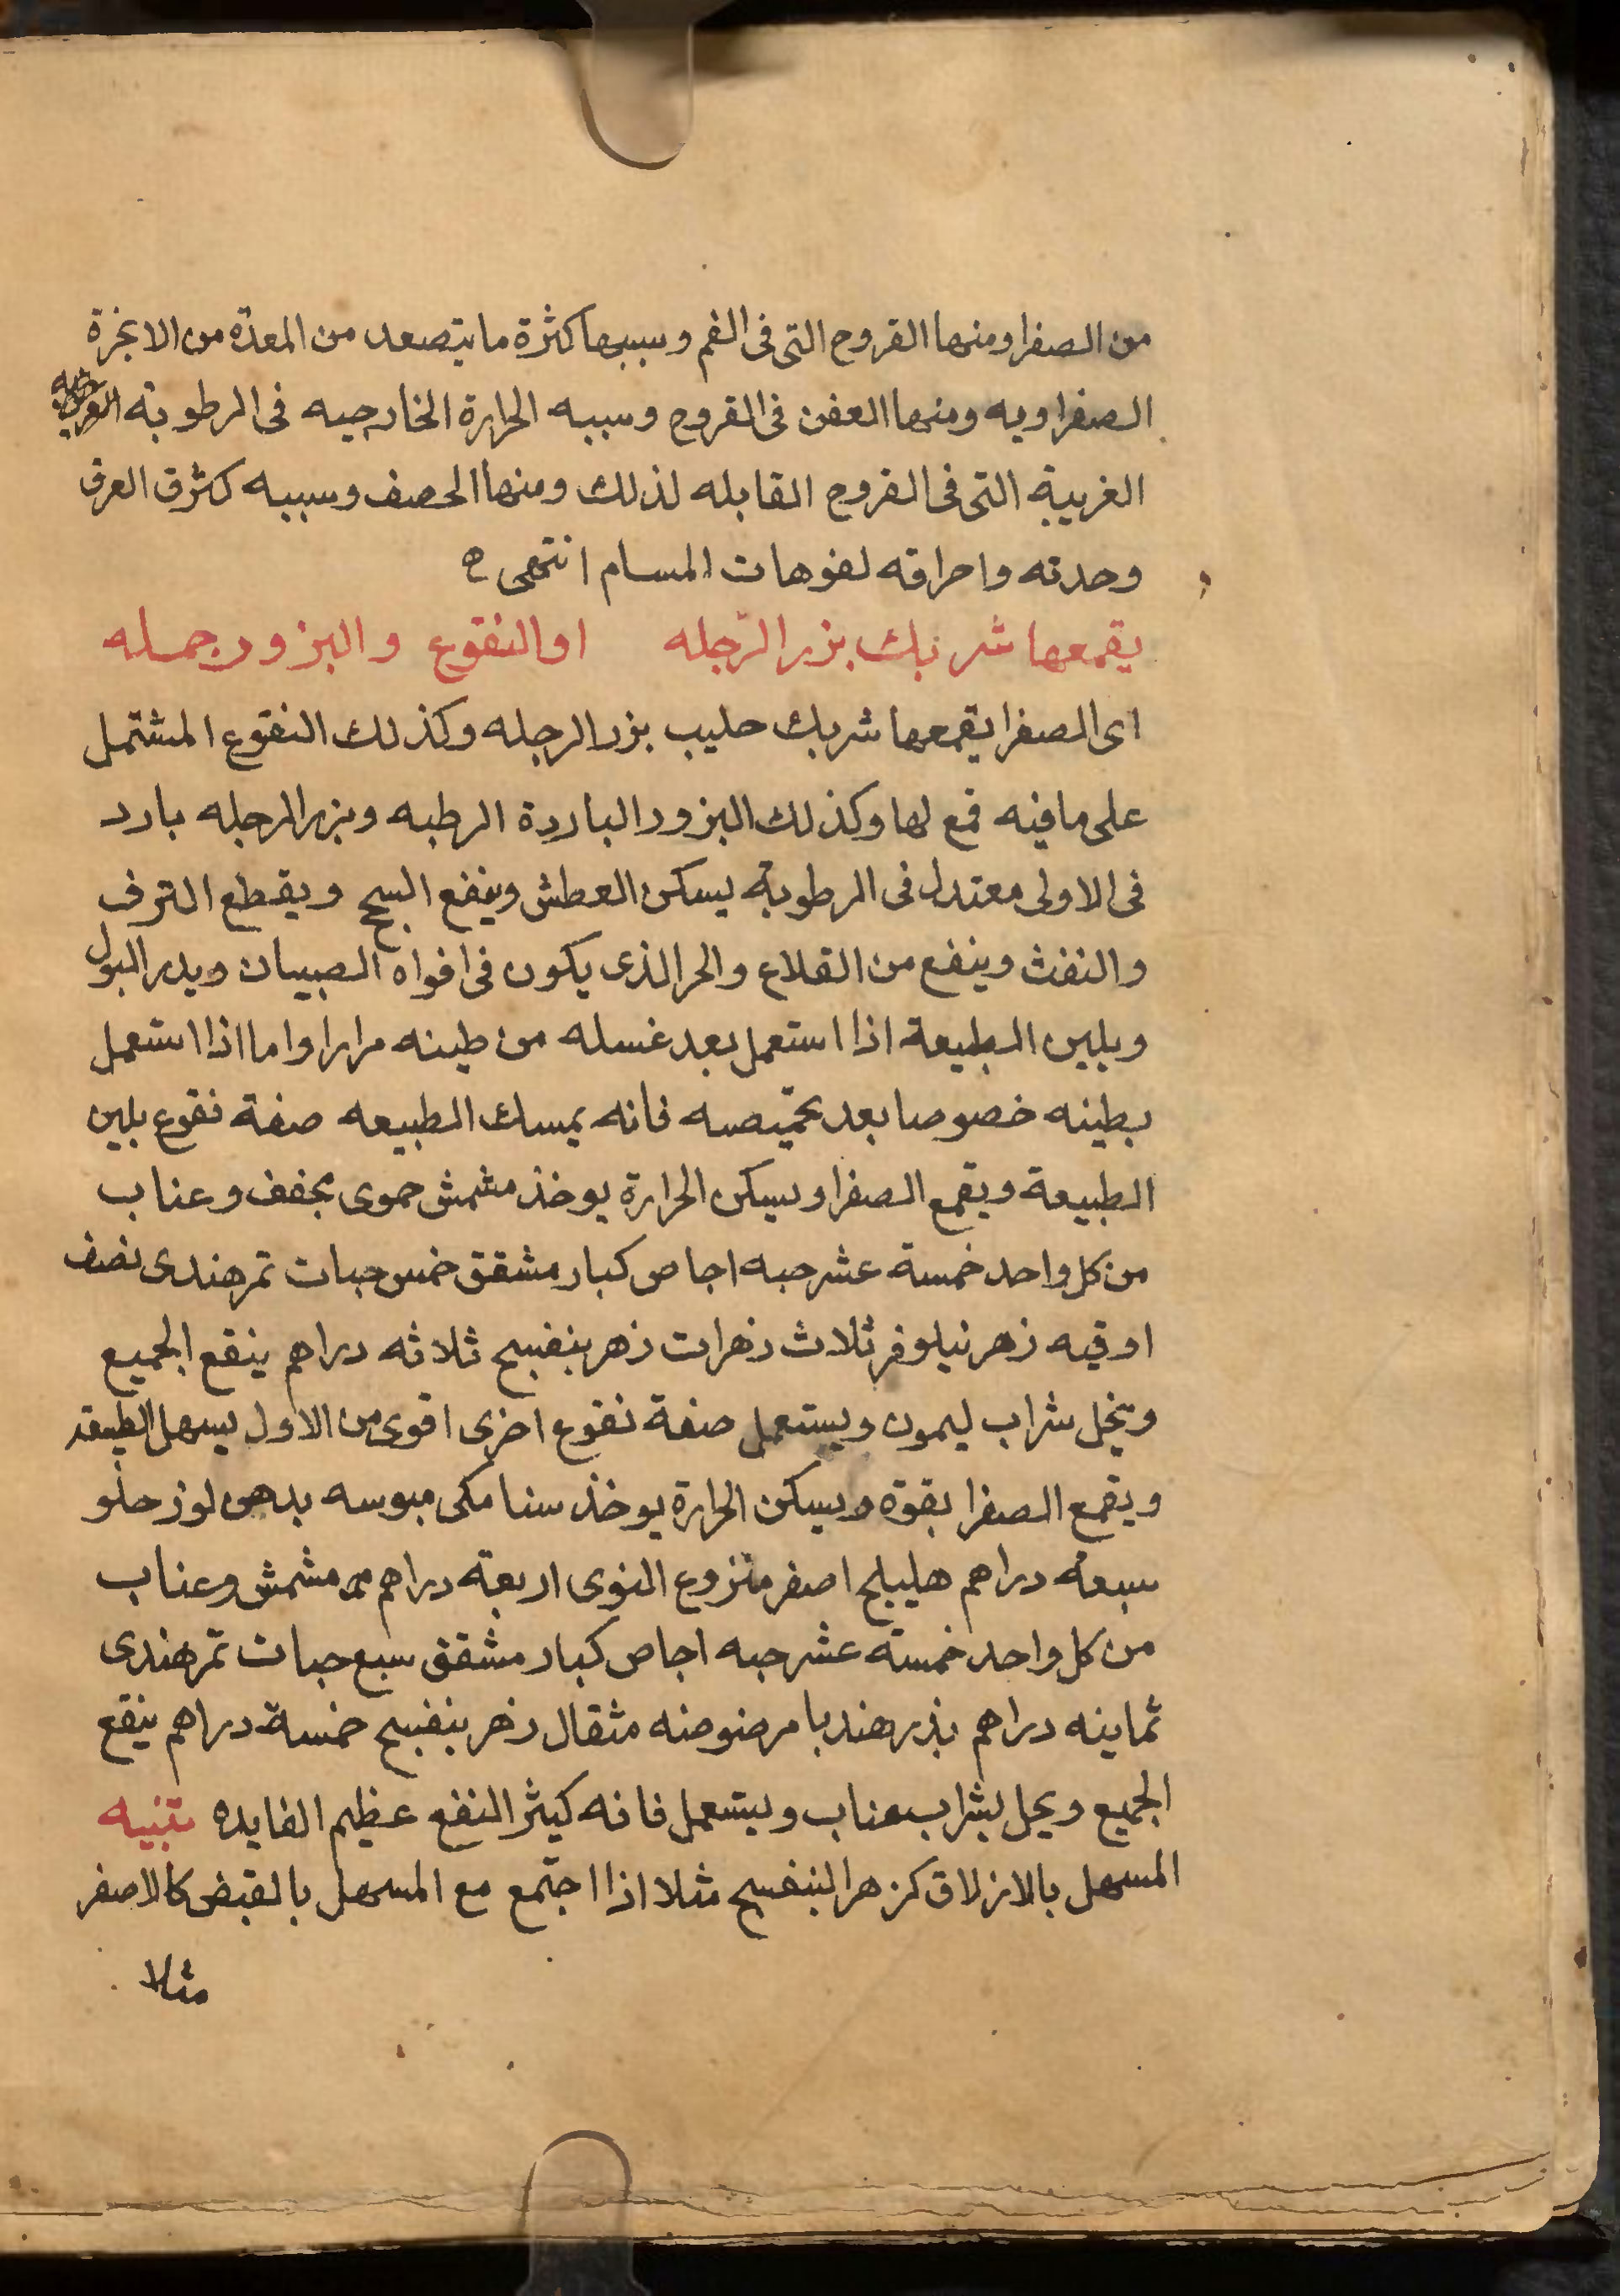 من الصفرا ومنها القروح التى فى الفم وسببها كثرة ما يتصعد من المعدة من الابخرة
الصفراويه ومنها العفن فى القروح وسببه الحرارة الخارجيه فى الرطوبة
الغريبة التى فى القروح القابله لذلك ومنها الحصف وسببه كثرة العرق
وحدته واحراقه لفوهات المسام انتهى ه
يقمعها شربك بزر الرّجله او النقوع والبزور جمله
اى الصفرا يقمعها شربك حليب بزر الرجله وكذلك النقوع المشتمل
على ما فيه قمع لها وكذلك البزور الباردة الرطبه وبزر الرجله بارد
فى الاولى معتدل فى الرطوبة يسكن العطش وينفع السحج ويقطع النزف
والنفث وينفع من القلاع والحر الذى يكون فى افواه الصبيان ويدر البول
ويلين الطبيعة اذا استعمل بعد غسله من طينه مرارا واما اذا استعمل
بطينه خصوصا بعد تحميصه فانه يمسك الطبيعه صفة نقوع يلين
الطبيعة ويقمع الصفرا ويسكن الحرارة يوخذ مشمش حموى مجفف وعناب
من كل واحد خمسة عشر حبه اجاص كبار مشقق خمس حبات تمر هندى نصف
اوقيه زهر نيلوفر ثلاث زهرات زهر بنفسج ثلاثه دراهم ينقع الجميع
ويحل شراب ليمون ويستعمل صفة نقوع اخرى اقوى من الاول يسهل
ويقمع الصفرا بقوة ويسكن الحرارة يوخذ سنا مكى مبوسه بدهن لوز حلو
سبعة دراهم هليلج اصفر منزوع النوى اربعة دراهم مشمش وعناب
من كل واحد خمسة عشر حبه اجاص كبار مشقق سبع حبات تمر هندى
ثمانيه دراهم بذر هندبا مرضوضه مثقال زهر بنفسج خمسة دراهم ينقع
الجميع ويحل بشراب عناب ويستعمل فانه كثير النفع عظيم الفايده تنبيه
المسهل بالازلاق كزهر البنفسج مثلا اذا اجتمع مع المسهل بالقبض كالاصفر
مثلا